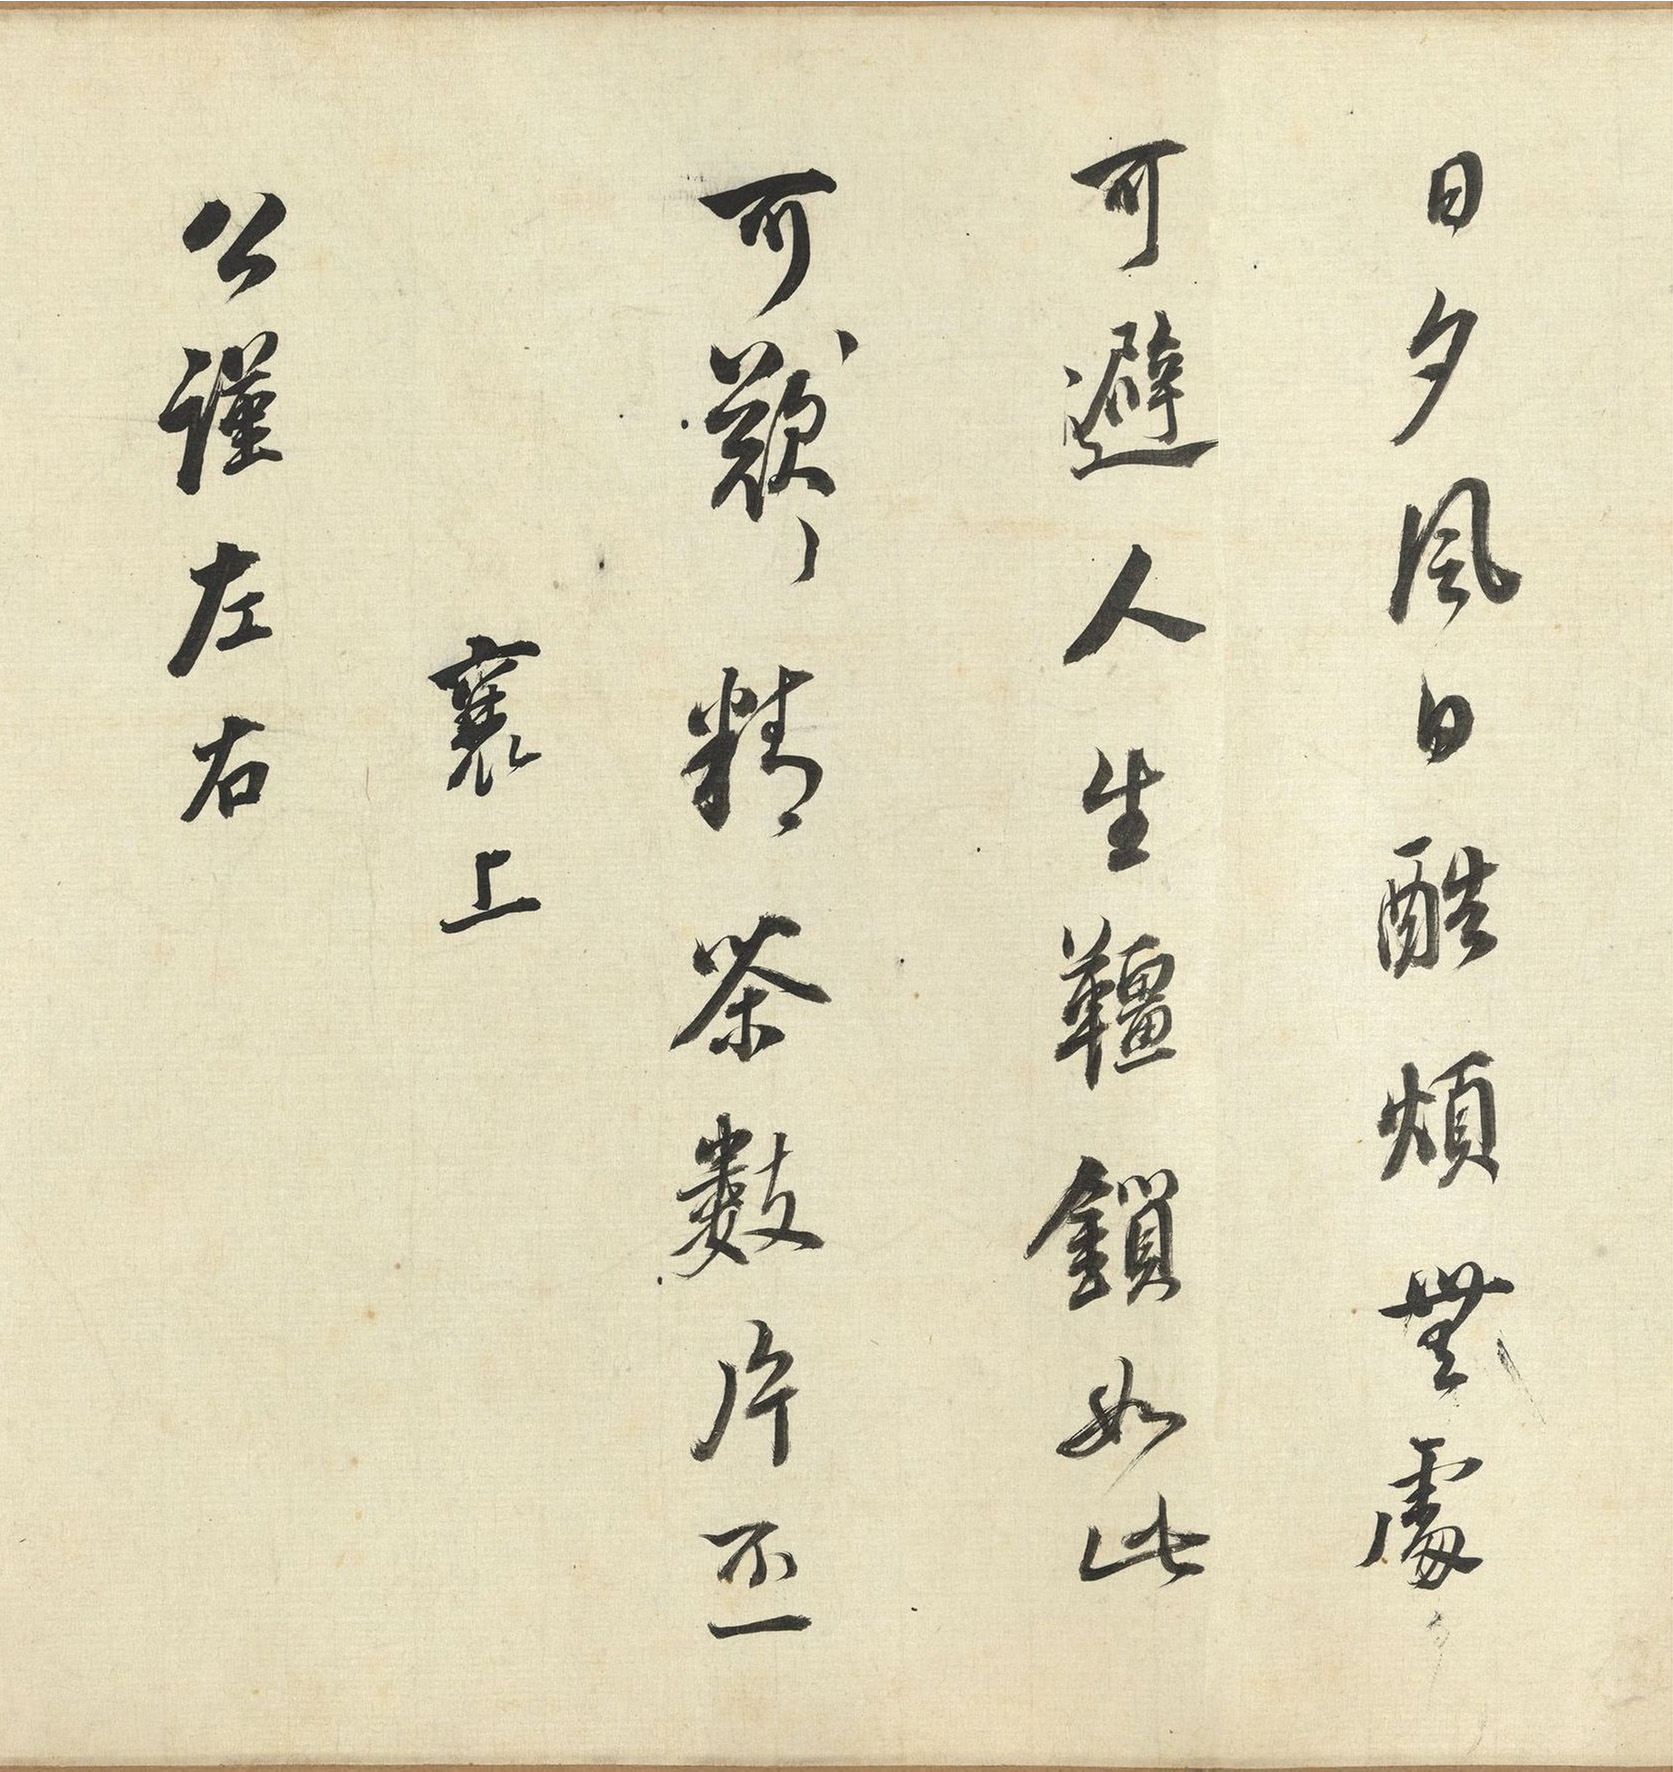 日夕風日酷煩無處
可避人生韁鎖如此
可〻歎〻精茶數片不一一
襄上
公謹左右